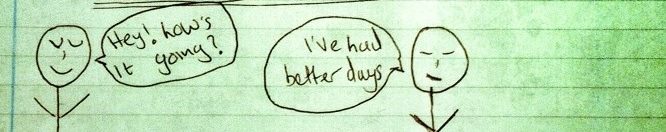 Hey! how's
it going?
I've had
better days